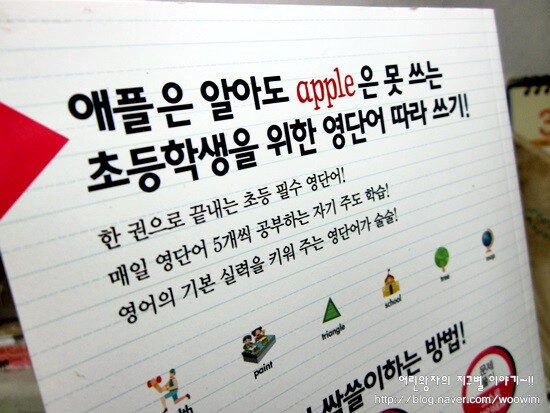 애플은 알아도 apple은 못 쓰는
초등학생을 위한 영단어 따라 쓰기!
한 권으로 끝내는 초등 필수 영단어!
매일 영단어 5개씩 공부하는 자기 주도 학습!
영어의 기본 실력을 키워 주는 영단어가 술술!
map
tree
school
triangle
paint
싹쓸이하는 방법!
어린왕자의 지구별 이야기~!!
http://blog.naver.com/woowim